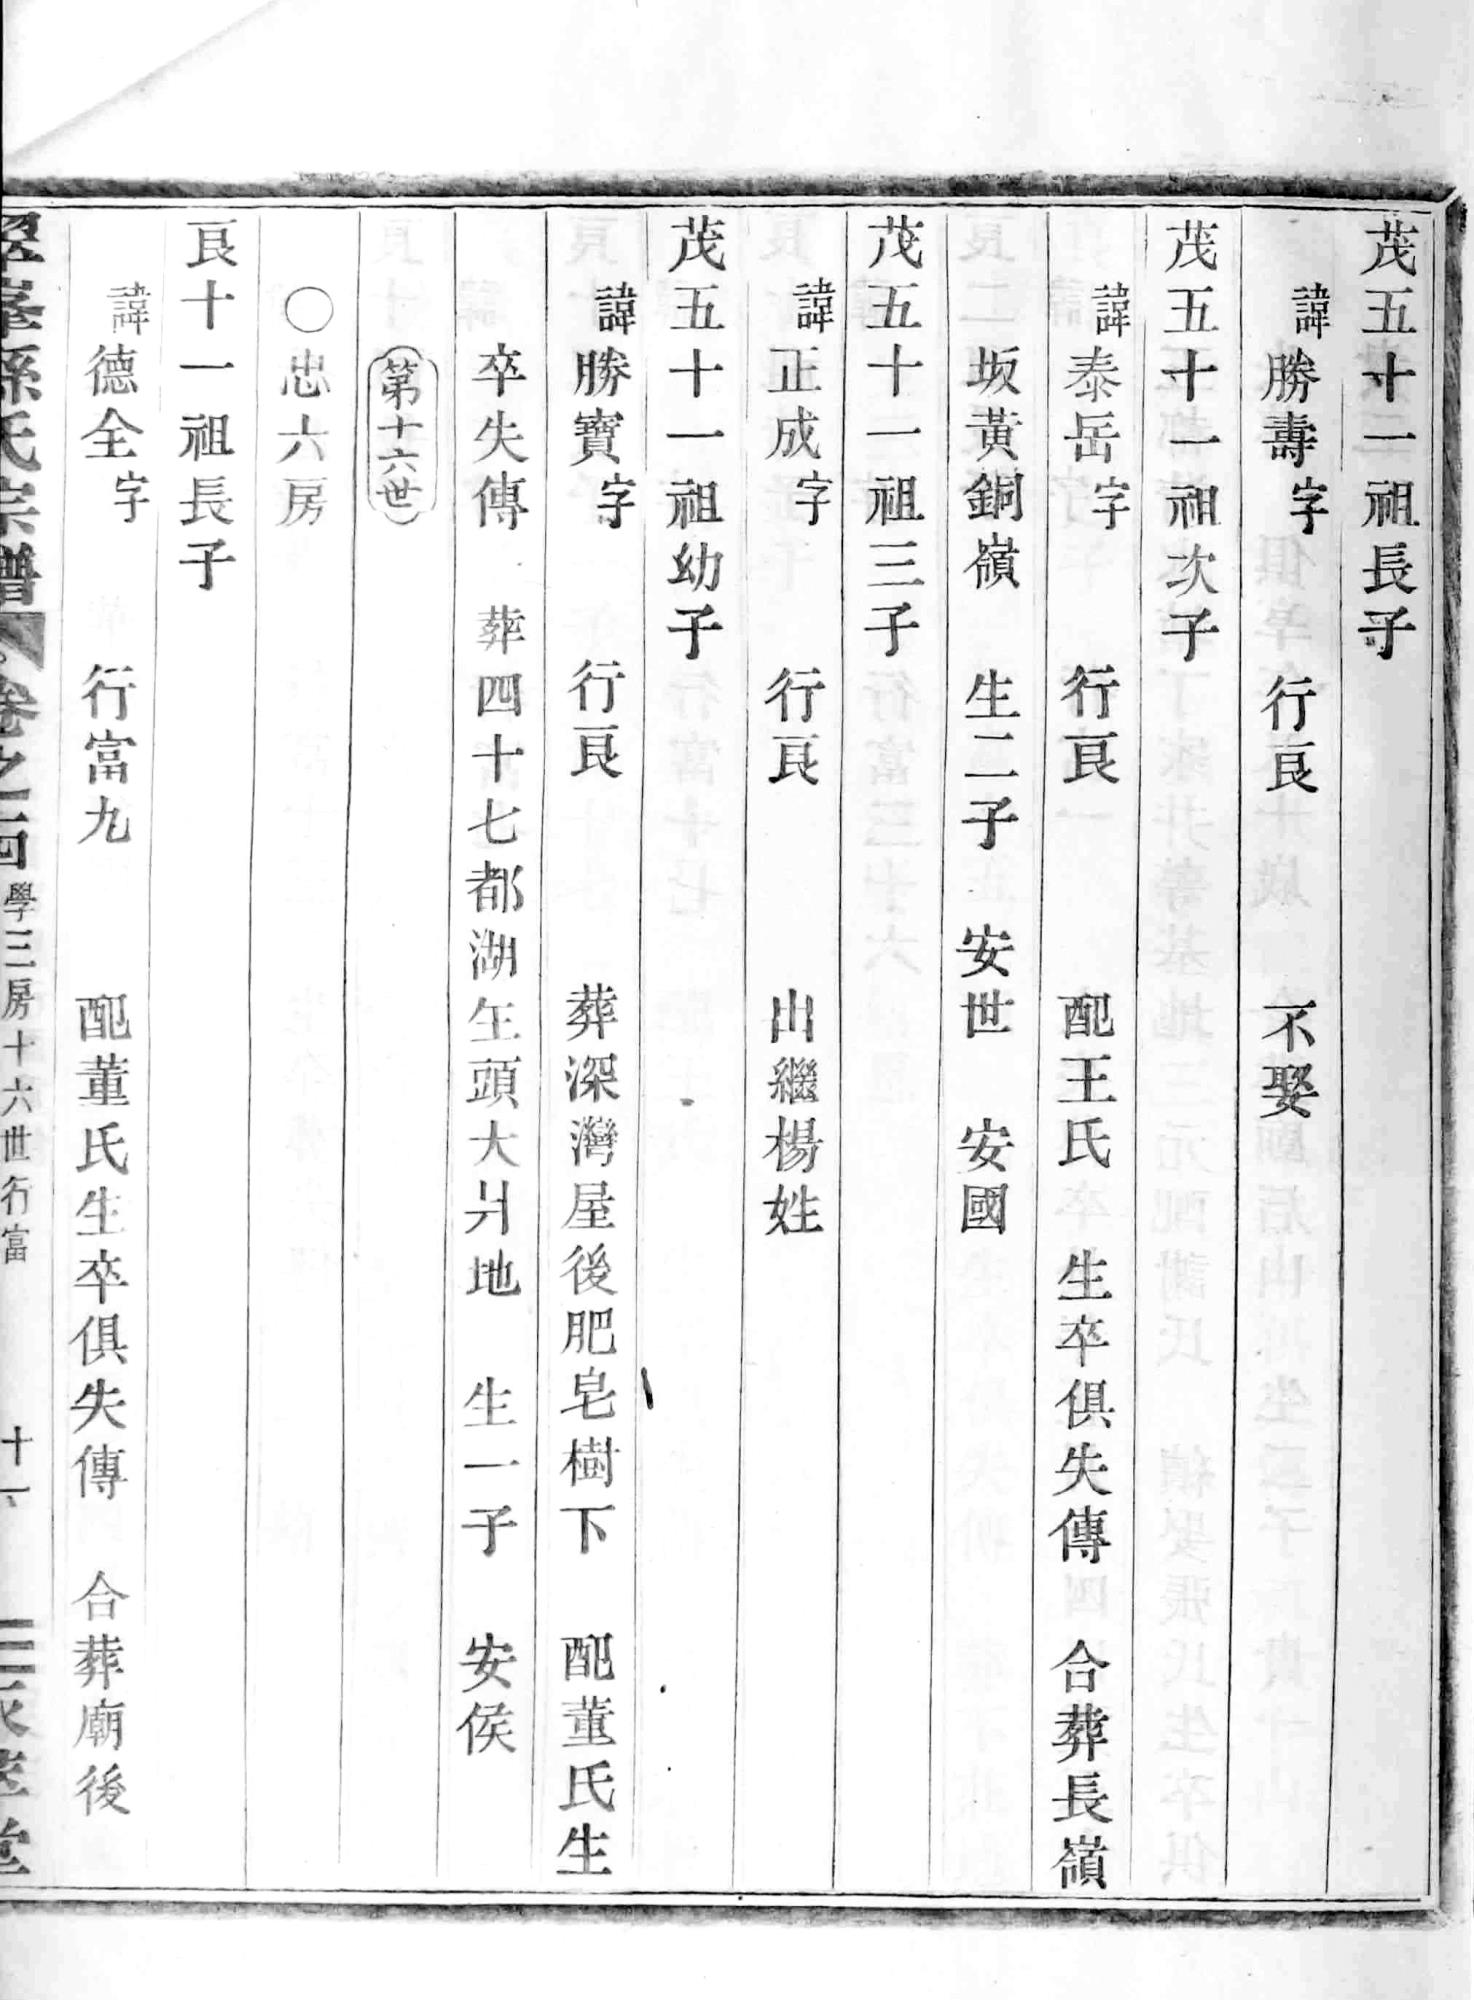 茂五十一祖長子
諱勝壽字 行艮 不娶
茂五十一祖次子
諱泰岳字 行艮 配王氏 生卒俱失傳 合葬長嶺
坂黃銅嶺 生二子 安世 安國
茂五十一祖三子
諱正成字 行艮 出繼楊姓
茂五十一祖幼子
諱勝寶字 行艮 葬深灣屋後肥皂樹下 配董氏生
卒失傳 葬四十七都湖玍頭大爿地 生一子 安侯
第十六世
〇忠六房
艮十一祖長子
諱德全字 行富九 配董氏生卒俱失傳 合葬廟後
翠峯孫氏宗譜 卷之四 學三房十六世行富 十一 堂